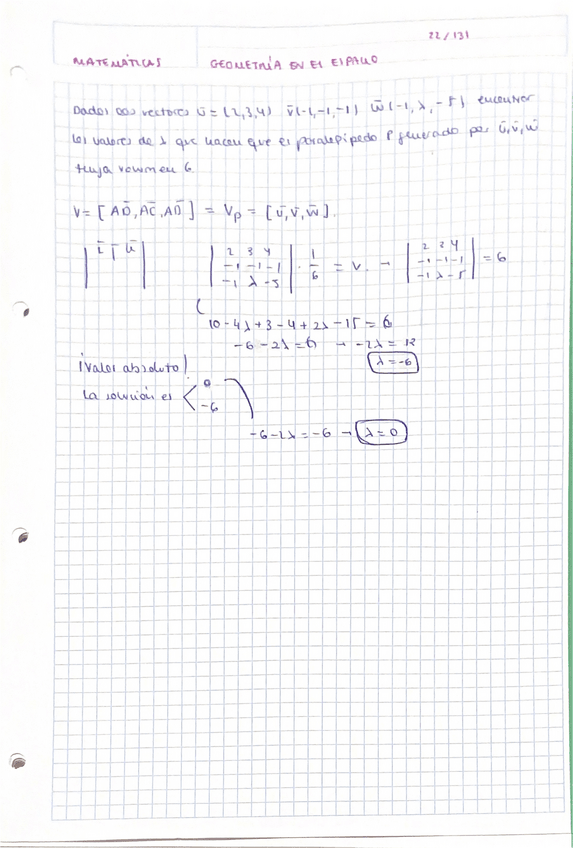 22/131
MATEMÁTICAS GEOMETRÍA EN EL ESPACIO
Dados los vectores ū = (2,3,4) v̄(-1,-1,-1) w̄(-1, λ, -5) encontrar
los valores de λ que hacen que el paralepípedo P generado por ū, v̄, w̄
tenga volumen 6.
V = [AD̄, AC̄, AD̄] = Vp = [ū, v̄, w̄].
| 2 3 4 | · 1/6 = V. → | 2 3 4 | = 6
| -1 -1 -1 | | -1 -1 -1 |
| -1 λ -5 | | -1 λ -5 |
10 - 4λ + 3 - 4 + 2λ - 15 = 6
-6 - 2λ = 6 → -2λ = 12
λ = -6
¡Valor absoluto!
La solución es < 0
-6
-6 - 2λ = -6 → λ = 0